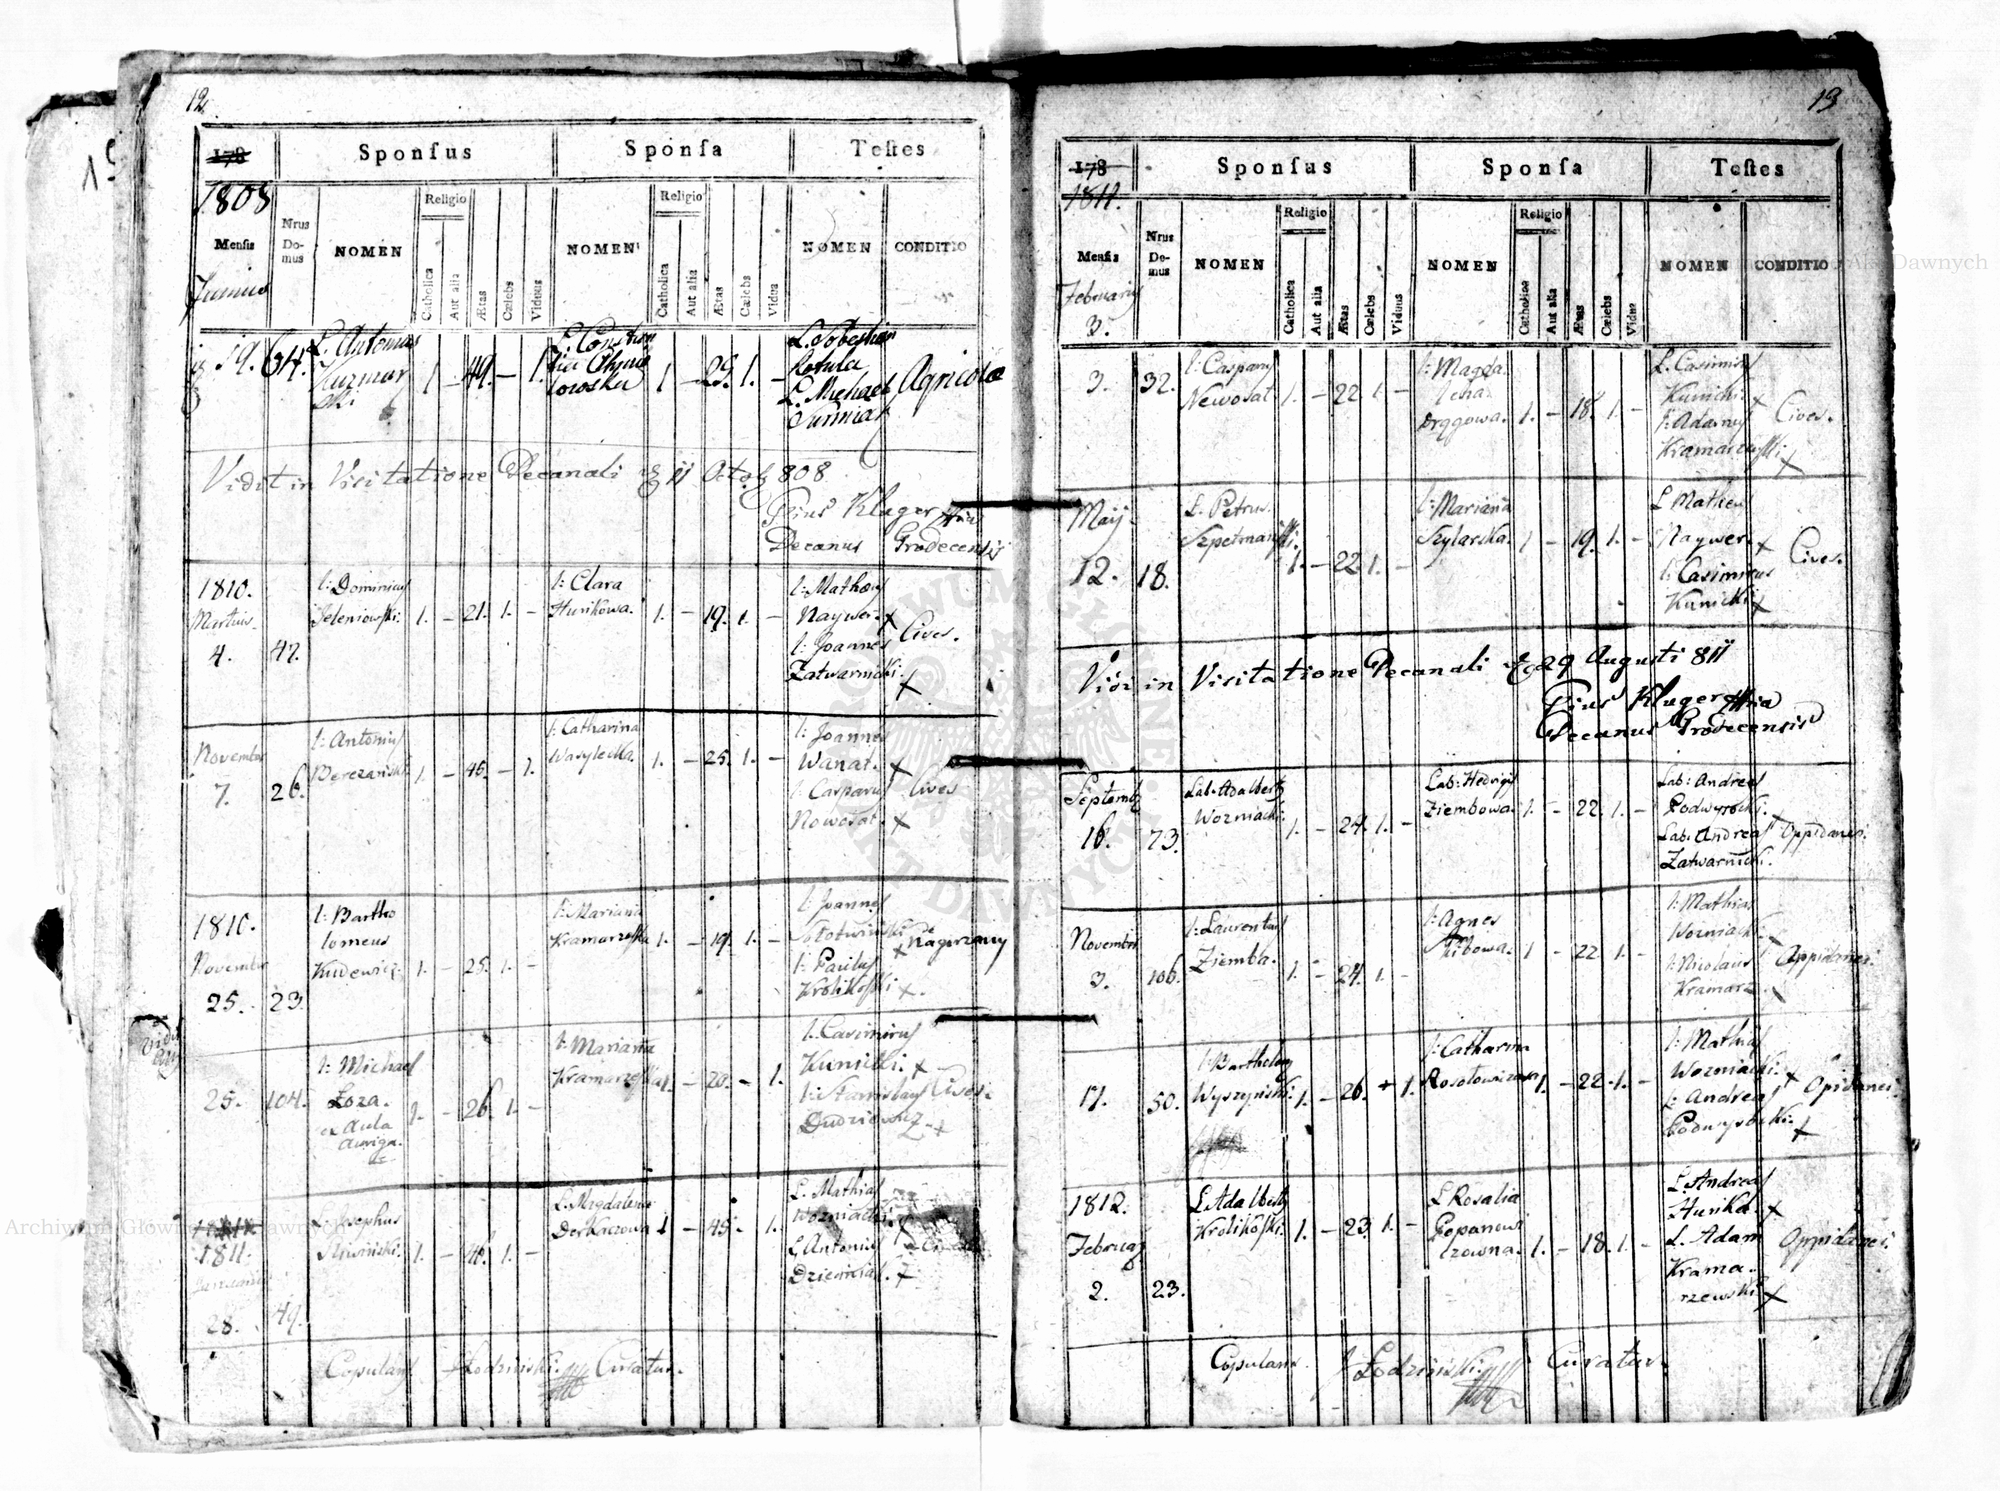 12.
178 Sponsus Sponsa Testes
1808
Mensis Nrus Domus NOMEN Religio Catholica Aut alia Ætas Cœlebs Viduus NOMEN Religio Catholica Aut alia Ætas Cœlebs Vidua NOMEN CONDITIO
Junius
19. 64. L. Antonius 1 – 49. – 1. 1 – 29. 1. – Agricolæ
L. Michael
Vidit in Visitatione Decanali 11 Octob 808
Pius Kluger
Decanus Grodecensis
1810.
Martius
4. 47.
l: Dominicus
Jeleniowski. 1. – 21. 1. –
l: Clara
Hunkowa. 1. – 19. 1. –
l: Mathæus
Naywer. x
l: Joannes
Zatwarnicki. x
Cives.
November
7. 26.
l: Antonius
Berezanski. 1. – 46. – 1.
l: Catharina
Wasylecka. 1. – 25. 1. –
l: Joannes
Wanat. x
l: Casparus
Nowosat. x
Cives
1810.
November
25. 23.
l: Bartho
lomeus
Kudewicz. 1. – 25. 1. –
l: Mariana
Kramarzeska 1. – 19. 1. –
l: Joannes
l: Paulus
Krolikoski x.
25. 104.
l: Michael
Łoza.
ex Aula
Auriga.
1. – 26. 1. –
l: Marianna
Kramarzeska 1. – 20. – 1.
l: Casimirus
Kunicki. x
l: Stanislaus
Dudziewicz x
Cives.
1811.
Januarius
28. 49.
L. Josephus
1. – 46. 1. –
L. Magdalena
Derkaczowa 1 – 45. – 1.
L. Mathias
Wozniacki.
L. Antonius
Dzieniak.
Copulans Łodzinski. Curatus.
13
178 Sponsus Sponsa Testes
1811.
Mensis Nrus Domus NOMEN Religio Catholica Aut alia Ætas Cœlebs Viduus NOMEN Religio Catholica Aut alia Ætas Cœlebs Vidua NOMEN CONDITIO
Februarius
3.
3. 32.
l: Casparus
Newosat. 1. – 22. 1. –
l: Magda
lena
Drągowa. 1. – 18. 1. –
L. Casimirus
Kunicki x
l: Adamus
Kramarzeski. x
Cives.
Maij
12. 18.
L. Petrus
Szpetmanski. 1. – 22. 1. –
l: Mariana
Szylarska. 1 – 19. 1. –
L Matheus
Naywer. x
l: Casimirus
Kunicki x
Cives.
Vidi in Visitatione Decanali 29 Augusti 811
Pius Kluger
Decanus Grodecensis
Septemb
16. 73.
Lab: Adalbertus
Wozniacki. 1. – 24. 1. –
Lab: Hedvigis
Ziembowa. 1. – 22. 1. –
Lab: Andreas
Podwysocki.
Lab: Andreas
Zatwarnicki.
Oppidanei.
November
3. 106.
l: Laurentius
Ziemba. 1. – 24. 1. –
l: Agnes
1 – 22 1. –
l: Mathias
Wozniacki.
l: Nicolaus
Kramarz.
Oppidanei.
17. 50.
l: Bartholom
Wyszynski. 1. – 26. + 1.
l: Catharina
1. – 22. 1. –
l: Mathias
Wozniacki. x
l: Andreas
Podwysocki. x
Opidanei.
1812.
Februar
2. 23.
L Adalbert
Krolikoski. 1. – 23 1. –
L Rosalia
Popanow
czowna. 1. – 18. 1. –
L. Andreas
Hunka. x
L. Adam
Krama.
rzewski x
Oppidanei.
Copulans. J Łodzinski Curatus.
Archiwum Główne Akt Dawnych